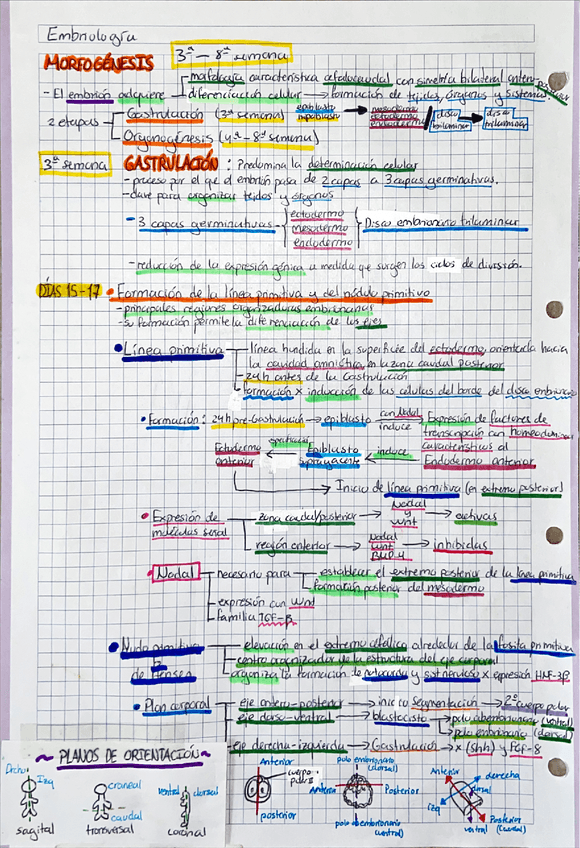 Embriología
MORFOGÉNESIS 3ª - 8ª semana
- El embrión adquiere morfología característica cefalocaudal con simetría bilateral antero-posterior
diferenciación celular → formación de tejidos, órganos y sistemas
2 etapas Gastrulación (3ª semana) epiblasto hipoblasto → mesodermo ectodermo endodermo / disco bilaminar → disco trilaminar
Organogénesis (4ª - 8ª semana)
3ª semana GASTRULACIÓN : Predomina la determinación celular
- proceso por el que el embrión pasa de 2 capas a 3 capas germinativas.
- clave para organizar tejidos y órganos
- 3 capas germinativas - { ectodermo mesodermo endodermo } Disco embrionario trilaminar
- reducción de la expresión génica a medida que surgen los ciclos de división.
DÍAS 15-17 • Formación de la línea primitiva y del nódulo primitivo
- principales regiones organizadoras embrionarias
- su formación permite la diferenciación de los ejes
• Línea primitiva línea hundida en la superficie del ectodermo, orientada hacia
la cavidad amniótica, en la zona caudal posterior
24h antes de la Gastrulación
formación × inducción de las células del borde del disco embrionario
• Formación : 24h pre-Gastrulación → epiblasto induce → Expresión de factores de
transcripción con homeodominios
característicos al
Endodermo anterior
Ectodermo anterior ← Epiblasto suprayacente ← induce
→ Inicio de línea primitiva (en extremo posterior)
• Expresión de moléculas señal zona caudal/posterior → Nodal y Wnt → activas
región anterior → Nodal Wnt BMP-4 → inhibidas
• Nodal necesario para establecer el extremo posterior de la línea primitiva
formación posterior del mesodermo
expresión con Wnt
familia TGF-β
• Nudo primitivo de Hensen elevación en el extremo cefálico alrededor de la fosita primitiva
centro organizador de la estructura del eje corporal
organiza la formación de notocorda y sist nervioso × expresión HNF-3β
• Plan corporal eje antero-posterior → inicio segmentación → 2º cuerpo polar
eje dorso-ventral → blastocisto → polo abembrionario (ventral)
→ polo embrionario (dorsal)
eje derecha-izquierda → Gastrulación → × (Shh) y FGF-8
~ PLANOS DE ORIENTACIÓN ~
Drcha Izq
sagital
craneal
caudal
transversal
ventral dorsal
coronal
Anterior
cuerpo polar
posterior
polo embrionario (dorsal)
Anterior Posterior
polo abembrionario (ventral)
Anterior derecha
dorsal
izq
ventral
Posterior (caudal)